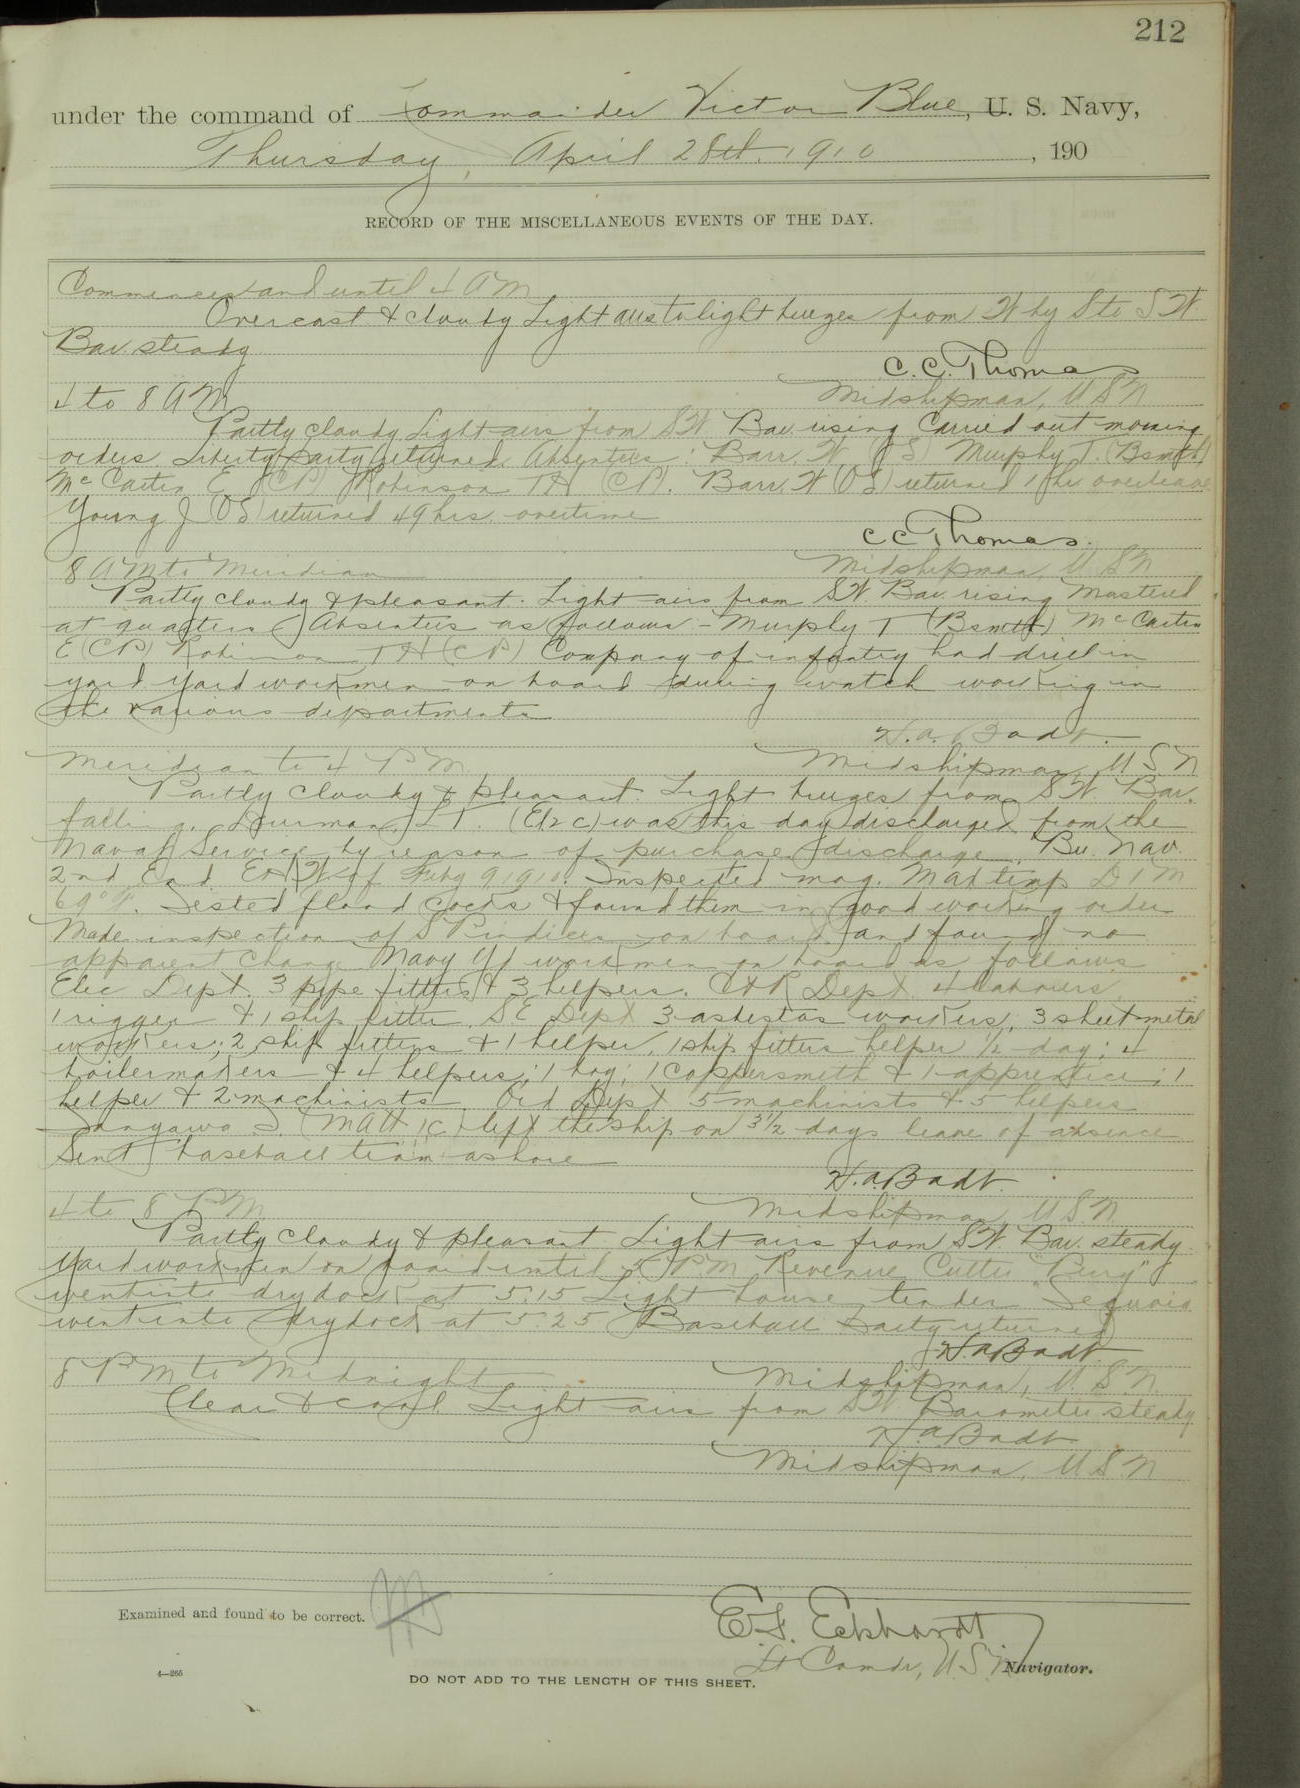 212
under the command of Commander Victor Blue, U. S. Navy,
Thursday, April 28th. 1910, 190
RECORD OF THE MISCELLANEOUS EVENTS OF THE DAY.
Commences and until 4 A M
Overcast & cloudy Light airs to light breezes from W by S to S W.
Bar. steady
C. C. Thomas
4 to 8 A M
Midshipman, U S N
Partly cloudy Light airs from SW. Bar. rising Carried out morning
orders Liberty party returned. Absentees: Barr, W (OS) Murphy T. (Bsmth)
McCartin E (CP) Robinson TH (CP). Barr, W (OS) returned 1 hr overleave
Young J (OS) returned 49 hrs. overtime
C C Thomas.
8 A M to Meridian
Midshipman, U S N
Partly cloudy & pleasant. Light airs from SW. Bar. rising Mustered
at quarters Absentees as follows - Murphy T (Bsmth) McCartin
E (CP) Robinson TH (CP) Company of infantry had drill in
yard. Yard workmen on board during watch working in
the various departments
H. A. Badt.
Meridian to 4 P M.
Midshipman, U S N
Partly cloudy & pleasant. Light breezes from SW. Bar.
falling. L T. (El 2 c) was this day discharged from the
Naval Service by reason of purchase discharge, Bu. Nav.
2nd End. of 9 1910. Inspected mag. Max temp D 1 M
69° F. Tested flood cocks & found them in good working order
Made inspection of S P on board and found no
apparent change Navy Yd workmen on board as follows
Elec Dept. 3 pipe fitters & 3 helpers. C & R Dept. 4 laborers,
1 rigger & 1 ship fitter. S.E Dept 3 asbestos workers, 3 sheet metal
workers; 2 ship fitters & 1 helper, 1 ship fitters helper 1/2 day; 4
boilermakers & 4 helpers; 1 boy; 1 coppersmith & 1 apprentice; 1
helper & 2 machinists Ord Dept 5 machinists & 5 helpers
S. (M Att 1 c) left the ship on 3 1/2 days leave of absence
Sent baseball team ashore
H. A. Badt.
4 to 8 P M
Midshipman U S. N
Partly cloudy & pleasant Light airs from SW Bar. steady.
Yard workmen on board until 5 P. M. Revenue Cutter "
went into drydock at 5:15 Light house tender Sequoia
went into drydock at 5:25 Baseball party returned
H. A Badt
8 P M to Midnight
Midshipman, U. S. N.
Clear & cool. Light airs from SW Barometer steady
H. A Badt
Midshipman, U. S. N
Examined and found to be correct.
E. F. Eckhardt
Lt Comdr, U. S. N. Navigator.
4—265
DO NOT ADD TO THE LENGTH OF THIS SHEET.